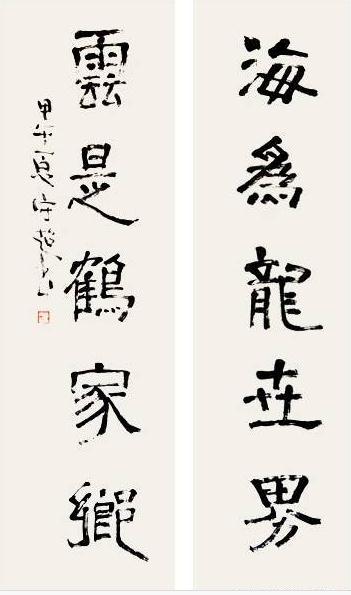 海為龍世界
雲是鶴家鄉
甲午夏守